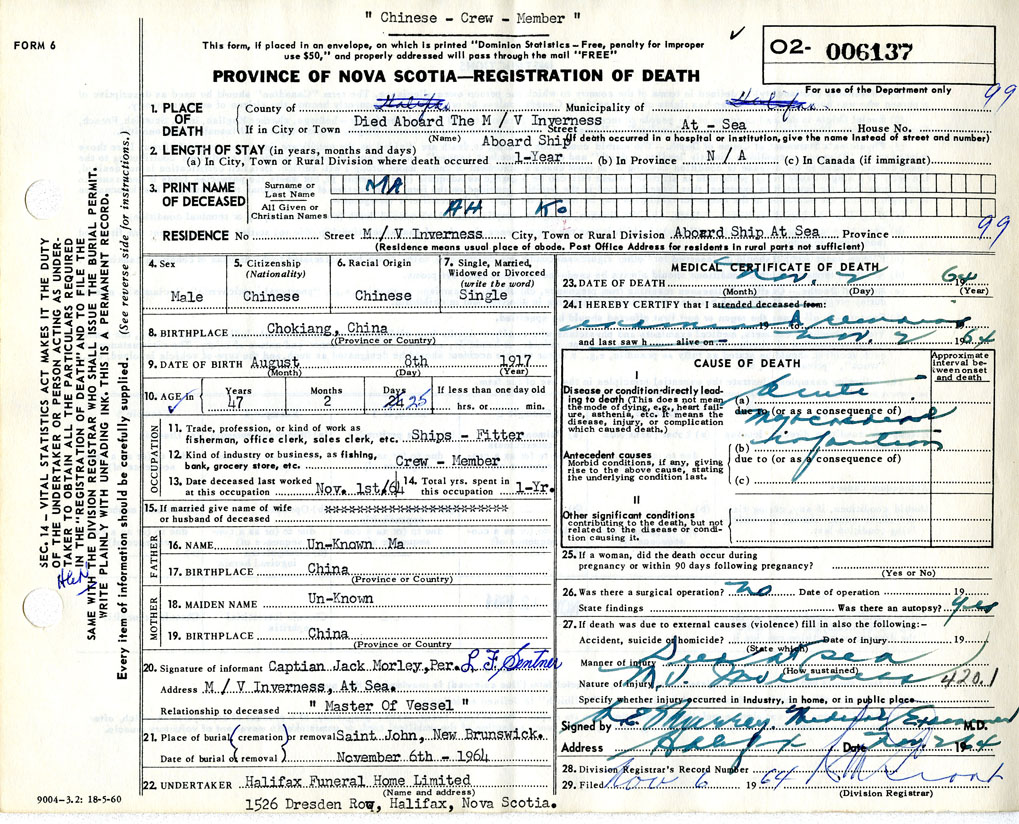 " Chinese - Crew - Member "
FORM 6
This form, if placed in an envelope, on which is printed "Dominion Statistics—Free, penalty for improper
use $50," and properly addressed will pass through the mail "FREE"
O2- 006137
PROVINCE OF NOVA SCOTIA—REGISTRATION OF DEATH
For use of the Department only
99
1. PLACE OF DEATH
County of Halifax Municipality of Halifax
If in City or Town Died Aboard The M / V Inverness Street At - Sea House No.
(Name) (If death occurred in a hospital or institution, give the name instead of street and number)
Aboard Ship
2. LENGTH OF STAY (in years, months and days)
(a) In City, Town or Rural Division where death occurred 1-Year (b) In Province N / A (c) In Canada (if immigrant)
3. PRINT NAME OF DECEASED
Surname or Last Name MA
All Given or Christian Names AH KO
RESIDENCE No Street M / V Inverness City, Town or Rural Division Aboard Ship At Sea Province 99
(Residence means usual place of abode. Post Office Address for residents in rural parts not sufficient)
4. Sex Male
5. Citizenship (Nationality) Chinese
6. Racial Origin Chinese
7. Single, Married, Widowed or Divorced (write the word) Single
8. BIRTHPLACE Chokiang, China
(Province or Country)
9. DATE OF BIRTH August 8th 1917
(Month) (Day) (Year)
10. AGE in Years 47 Months 2 Days 24 25 If less than one day old hrs. or min.
OCCUPATION
11. Trade, profession, or kind of work as fisherman, office clerk, sales clerk, etc. Ships - Fitter
12. Kind of industry or business, as fishing, bank, grocery store, etc. Crew - Member
13. Date deceased last worked at this occupation Nov. 1st/64
14. Total yrs. spent in this occupation 1-Yr.
15. If married give name of wife or husband of deceased xxxxxxxxxxxxxxxxxxxxxx
FATHER
16. NAME Un-Known Ma
17. BIRTHPLACE China
(Province or Country)
MOTHER
18. MAIDEN NAME Un-Known
19. BIRTHPLACE China
(Province or Country)
20. Signature of informant Captian Jack Morley, Per. L. F. Sentner
Address M / V Inverness, At Sea.
Relationship to deceased " Master Of Vessel "
21. Place of burial (cremation) or removal Saint John, New Brunswick.
Date of burial or removal November 6th - 1964
22. UNDERTAKER Halifax Funeral Home Limited
(Name and address)
1526 Dresden Row, Halifax, Nova Scotia.
9004-3.2: 18-5-60
MEDICAL CERTIFICATE OF DEATH
23. DATE OF DEATH Nov. 2 1964
(Month) (Day) (Year)
24. I HEREBY CERTIFY that I attended deceased from:
19 to 19
and last saw h alive on Nov. 2 1964
CAUSE OF DEATH
Approximate interval between onset and death
I
Disease or condition directly leading to death (This does not mean the mode of dying, e.g., heart failure, asthenia, etc. It means the disease, injury, or complication which caused death.)
(a) Acute
due to (or as a consequence of)
myocardial
(b) infarction
Antecedent causes
Morbid conditions, if any, giving rise to the above cause, stating the underlying condition last.
due to (or as a consequence of)
(c)
II
Other significant conditions
contributing to the death, but not related to the disease or condition causing it.
25. If a woman, did the death occur during pregnancy or within 90 days following pregnancy?
(Yes or No)
26. Was there a surgical operation? No Date of operation 19
State findings Was there an autopsy? yes
27. If death was due to external causes (violence) fill in also the following:—
Accident, suicide or homicide? Date of injury 19
(State which)
Manner of injury Died at sea
(How sustained)
Nature of injury M.V. Inverness 420.1
Specify whether injury occurred in Industry, in home, or in public place
Signed by Murray Medical Examiner M.D.
Address Halifax Date Nov 2 1964
28. Division Registrar's Record Number
29. Filed Nov 6 1964
(Division Registrar)
SEC. 14 — VITAL STATISTICS ACT MAKES IT THE DUTY
OF THE UNDERTAKER OR PERSON ACTING AS UNDER-
TAKER TO OBTAIN ALL THE PARTICULARS REQUIRED
IN THE "REGISTRATION OF DEATH" AND TO FILE THE
SAME WITH THE DIVISION REGISTRAR WHO SHALL ISSUE THE BURIAL PERMIT.
WRITE PLAINLY WITH UNFADING INK. THIS IS A PERMANENT RECORD.
Every item of information should be carefully supplied. (See reverse side for instructions.)